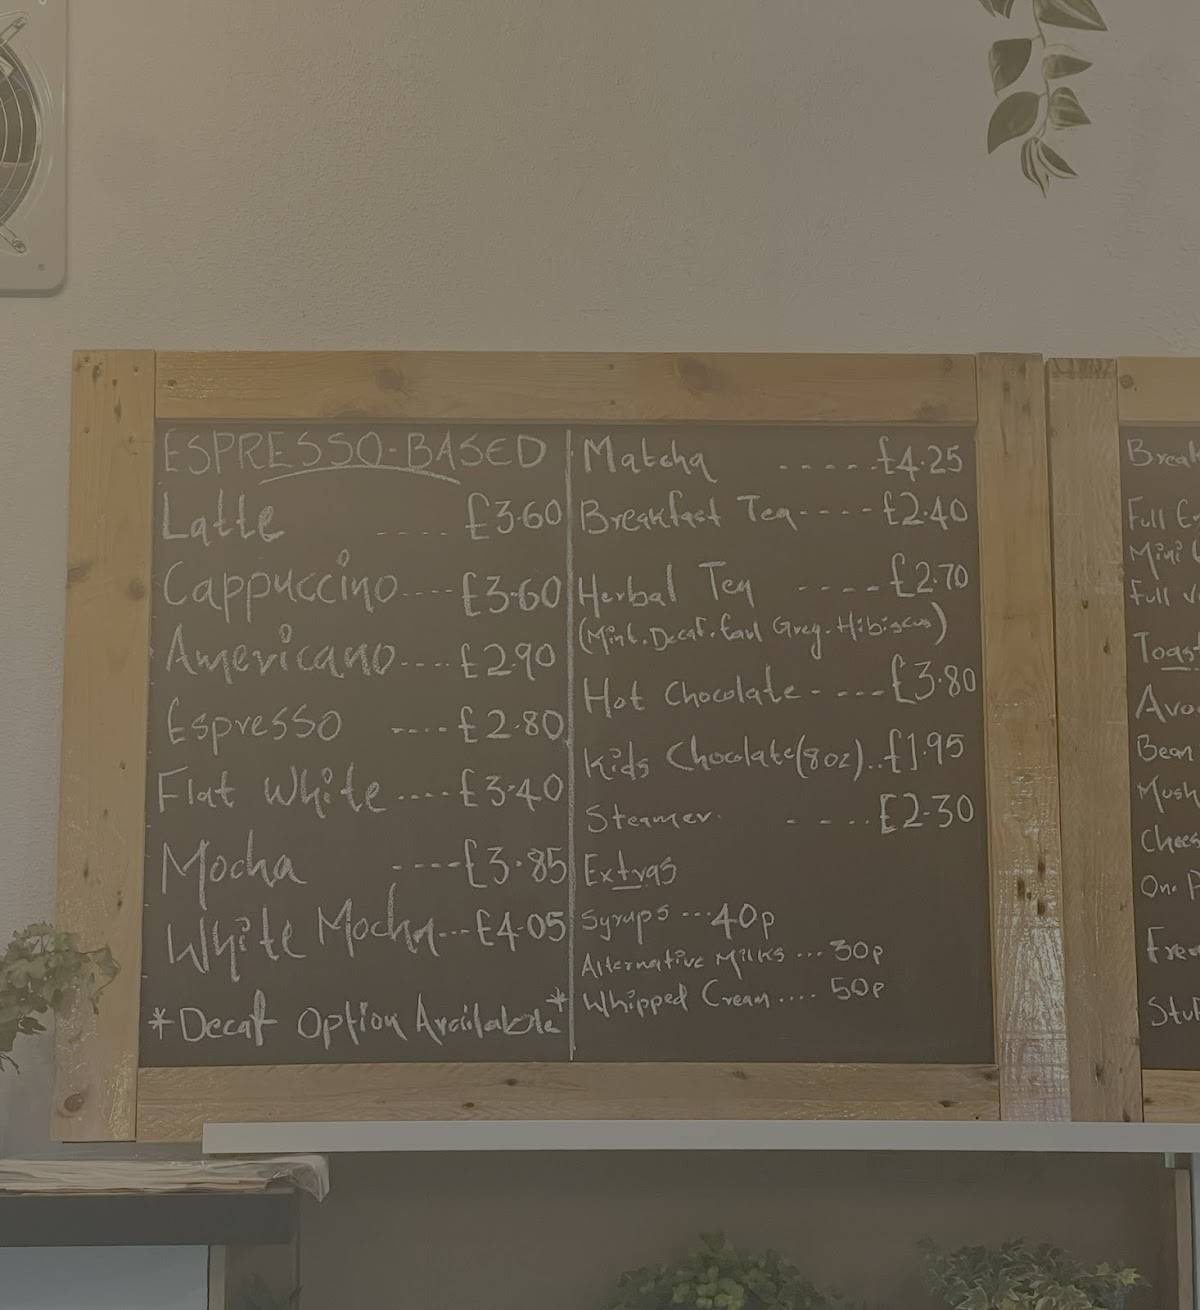 ESPRESSO-BASED
Latte ..... £3.60
Cappuccino .... £3.60
Americano .... £2.90
Espresso .... £2.80
Flat White .... £3.40
Mocha .... £3.85
White Mocha ... £4.05
*Decaf Option Available*
Matcha ..... £4.25
Breakfast Tea .... £2.40
Herbal Tea .... £2.70
(Mint. Decaf. Earl Grey. Hibiscus)
Hot Chocolate .... £3.80
Kids Chocolate (8oz) .. £1.95
Steamer .... £2.30
Extras
Syrups ... 40p
Alternative Milks ... 30p
Whipped Cream .... 50p
Full
Mini
Full
Toast
Bean